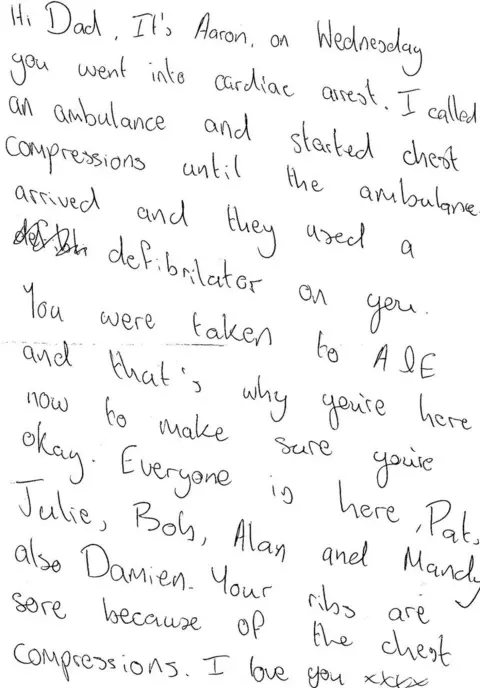 Hi Dad, It's Aaron, on Wednesday
you went into cardiac arrest. I called
an ambulance and started chest
compressions until the ambulance
arrived and they used a
defibrilator on you.
You were taken to A&E
and that's why you're here
now to make sure you're
okay. Everyone is here, Pat,
Julie, Bob, Alan and Mandy
also Damien. Your ribs are
sore because of the chest
compressions. I love you xxxx